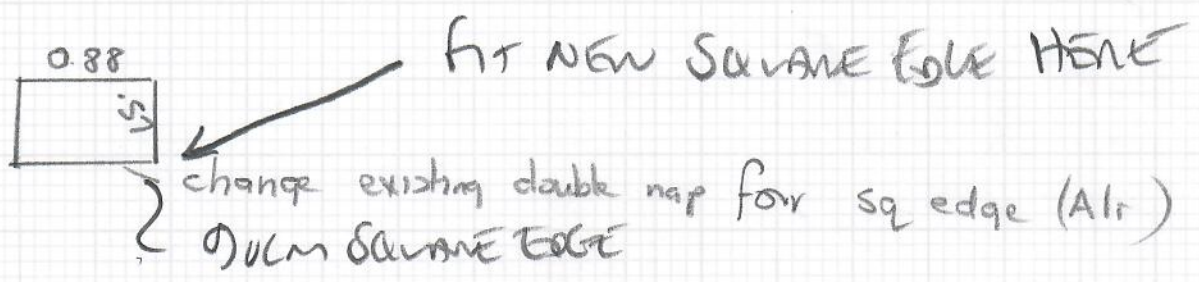 0.88
FIT NEW SQUARE EDGE HERE
change existing double nap for sq edge (Alr)
90CM SQUARE EDGE